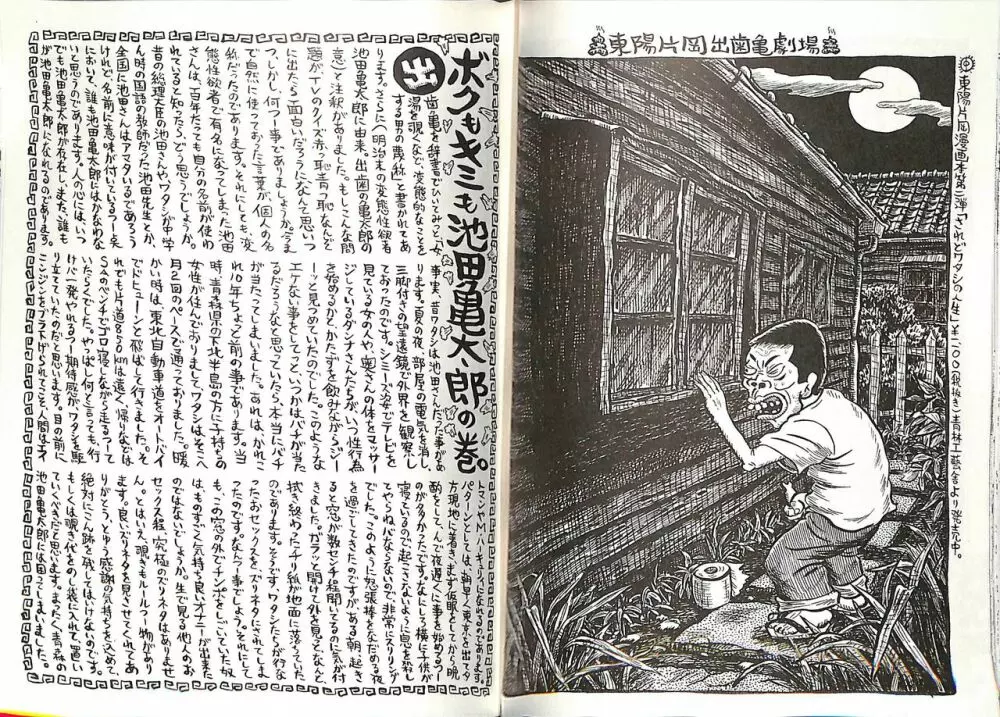 東陽片岡出歯亀劇場
東陽片岡漫画本第二弾「されどワタシの人生」¥一二〇〇(税抜き)青林工藝舎より発売中。
ボクもキミも池田亀太郎の巻。
出
歯亀を辞書でひいてみっつーか、
湯を覗くなど、変態的なことを
する男の蔑称」と書かれてあ
ります。さらに(明治末の変態性欲者
池田亀太郎に由来。出歯の亀太郎の
意)と注釈がありました。もしこんな問
題がTVのクイズ赤っ恥青っ恥なんど
に出たら面白いだろうになんて思いつ
つ、しかし、何つー事でありましょうか。今ま
で自然に使っておった言葉が、個人の名
称だったのであります。それにしても、変
態性欲者で有名になってしまった池田
さんは、百年たっても自分の名前が使わ
れていると知ったら、どう思うでしょうか。
昔の総理大臣の池田さんや、ワタシが中学
ん時の国語の教師だった池田先生とか、
全国に池田さんはアマタいるであろう
けれど、名前に意味が付いているつー矣
において、誰も池田亀太郎にはかなわな
いと思うのであります。人の心にはいつ
でも池田亀太郎が存在し、また、誰も
が池田亀太郎になれるのであります。
事実、昔ワタシは池田さんだった事があ
ります。夏の夜、部屋の電気を消し、
三脚付きの望遠鏡で外界を観察し
ておったのです。シミーズ姿でテレビを
見ている女の人や、奥さんの体をマッサー
ジしているダンナさんたちが、いつ性行為
を始めるかとかたずを飲みながらジジ
ーッと見つめていたのでした。このような
エゲツない事をしてっと、いつかはバチが当た
るだろうなと思っていたら、本当にバチ
が当たってしまいました。あれは、かれこ
れ10年ちょっと前の事であります。当
時、青森県の下北半島の方に子持ちの
女性が住んでおりまして、ワタシはそこへ
月2回のペースで通っておりました。暖
かい時は、東北自動車道をオートバイ
でドヒューンと飛ばして行きました。そ
れでも片道850kmは遠く、帰りなどは
SAのベンチでゴロ寝しながら走るつーて
いたらくでした。やっぱし何と言っても、行
けば一発やれるつー期待感がワタシを駆
り立てていたのだと思います。目の前に
ニンジンをブラ下げられてこそ人間はエイ
トマンやM・ハーキュリーになれるのであります。
パターンとしては、朝早く東京を出て夕
方現地に着き、まず仮眠をしてから晩
酌をして、んで夜遅くに事を始めるつー
のが多かったです。なにしろ横に子供が
寝ているので、起こさないように息を殺し
てやらねばならないので、非常にスリリング
でした。このように怒張棒をなだめる夜
を過ごしてきたのですが、ある朝、起き
ると窓が数センチ程開いてるのに気付
きました。ガラッと開けて外を見ると、なんと
拭き終わったチリ紙が地面に落ちていた
のであります。そうです。ワタシたちが行な
ったおセックスを、ズリネタにされてしま
ったのです。なんつー事でしょう。そして、
この窓の外でインポをしごいていた奴
は、ものすごく気持ち良いオナニーが出来た
のではないでしょうか。生で見る他人のお
セックス程、究極のズリネタはありませ
ん。とはいえ、覗きもルールっー物があり
ます。良いズリネタを見させてくれてあ
りがとう、つう感謝の気持ちを込めて、
絶対にこん跡を残してはいけないのです。
もしくは覗き代をのし袋に入れて、置い
ていくべきだと思います。まったく、青森の
池田亀太郎には困ってしまいました。